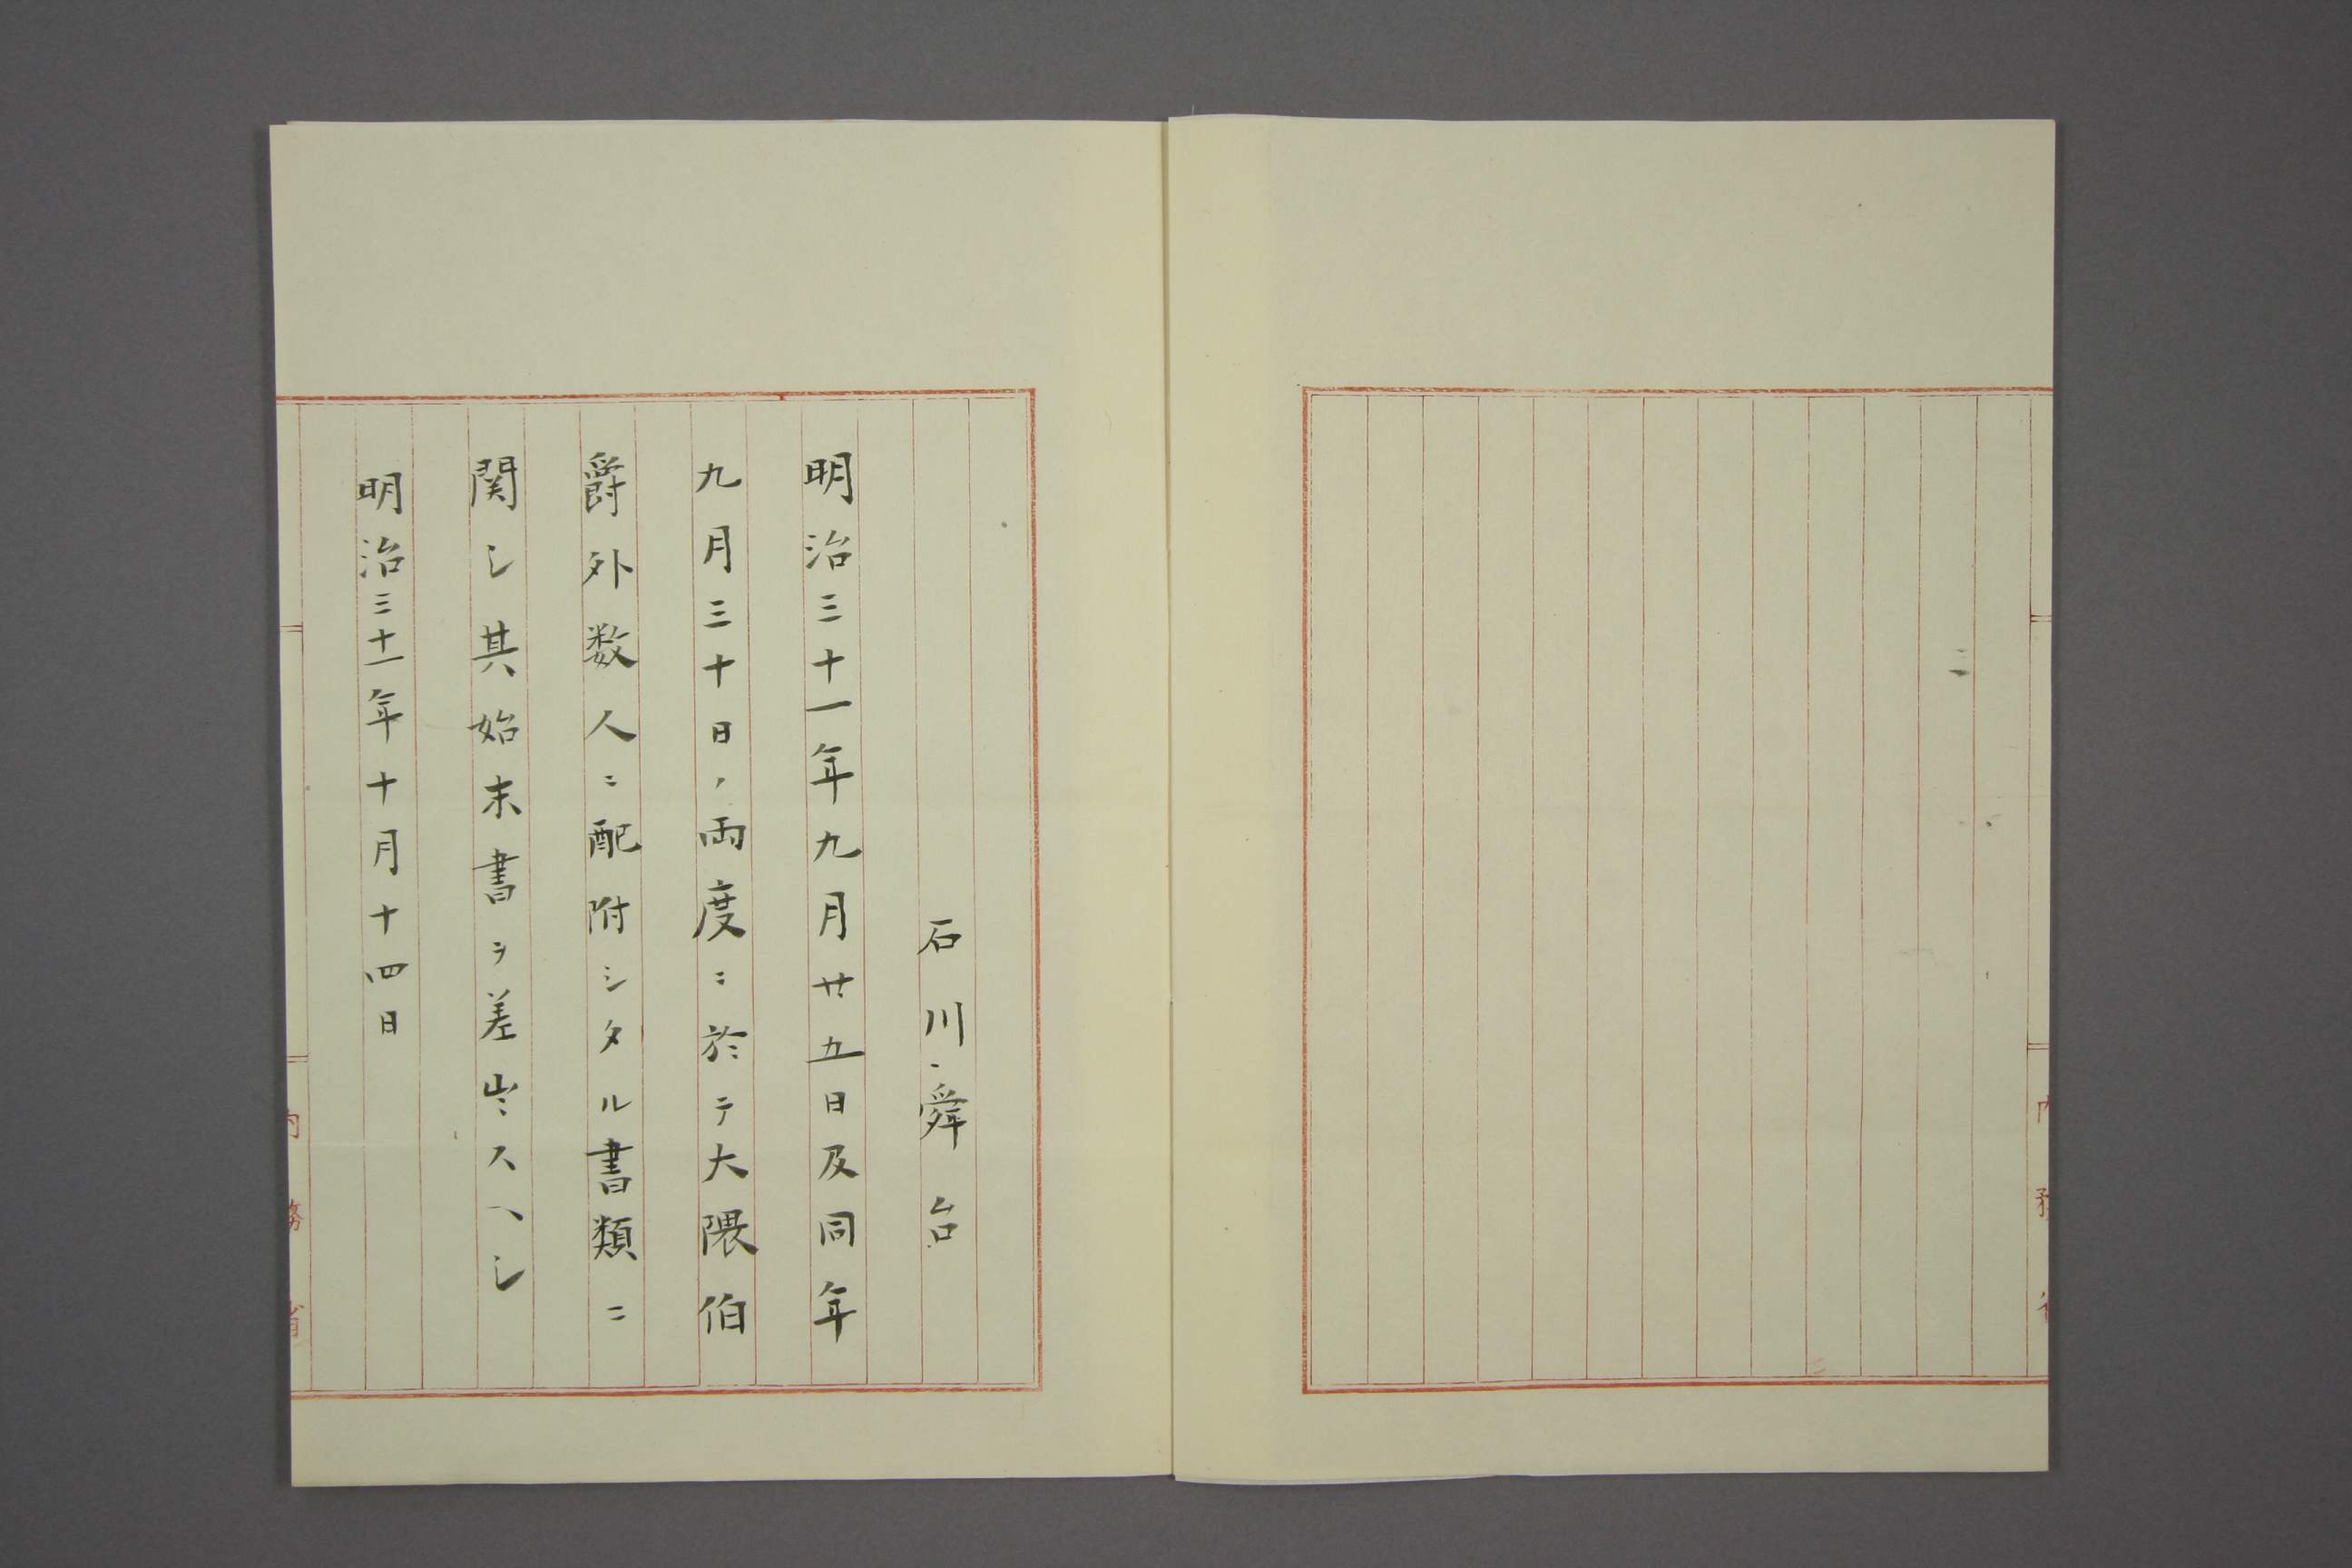 石川舜台
明治三十一年九月廿五日及同年
九月三十日ノ両度ニ於テ大隈伯
爵外数人ニ配附シタル書類ニ
関シ其始末書ヲ差出スヘシ
明治三十一年十月十四日
内務省